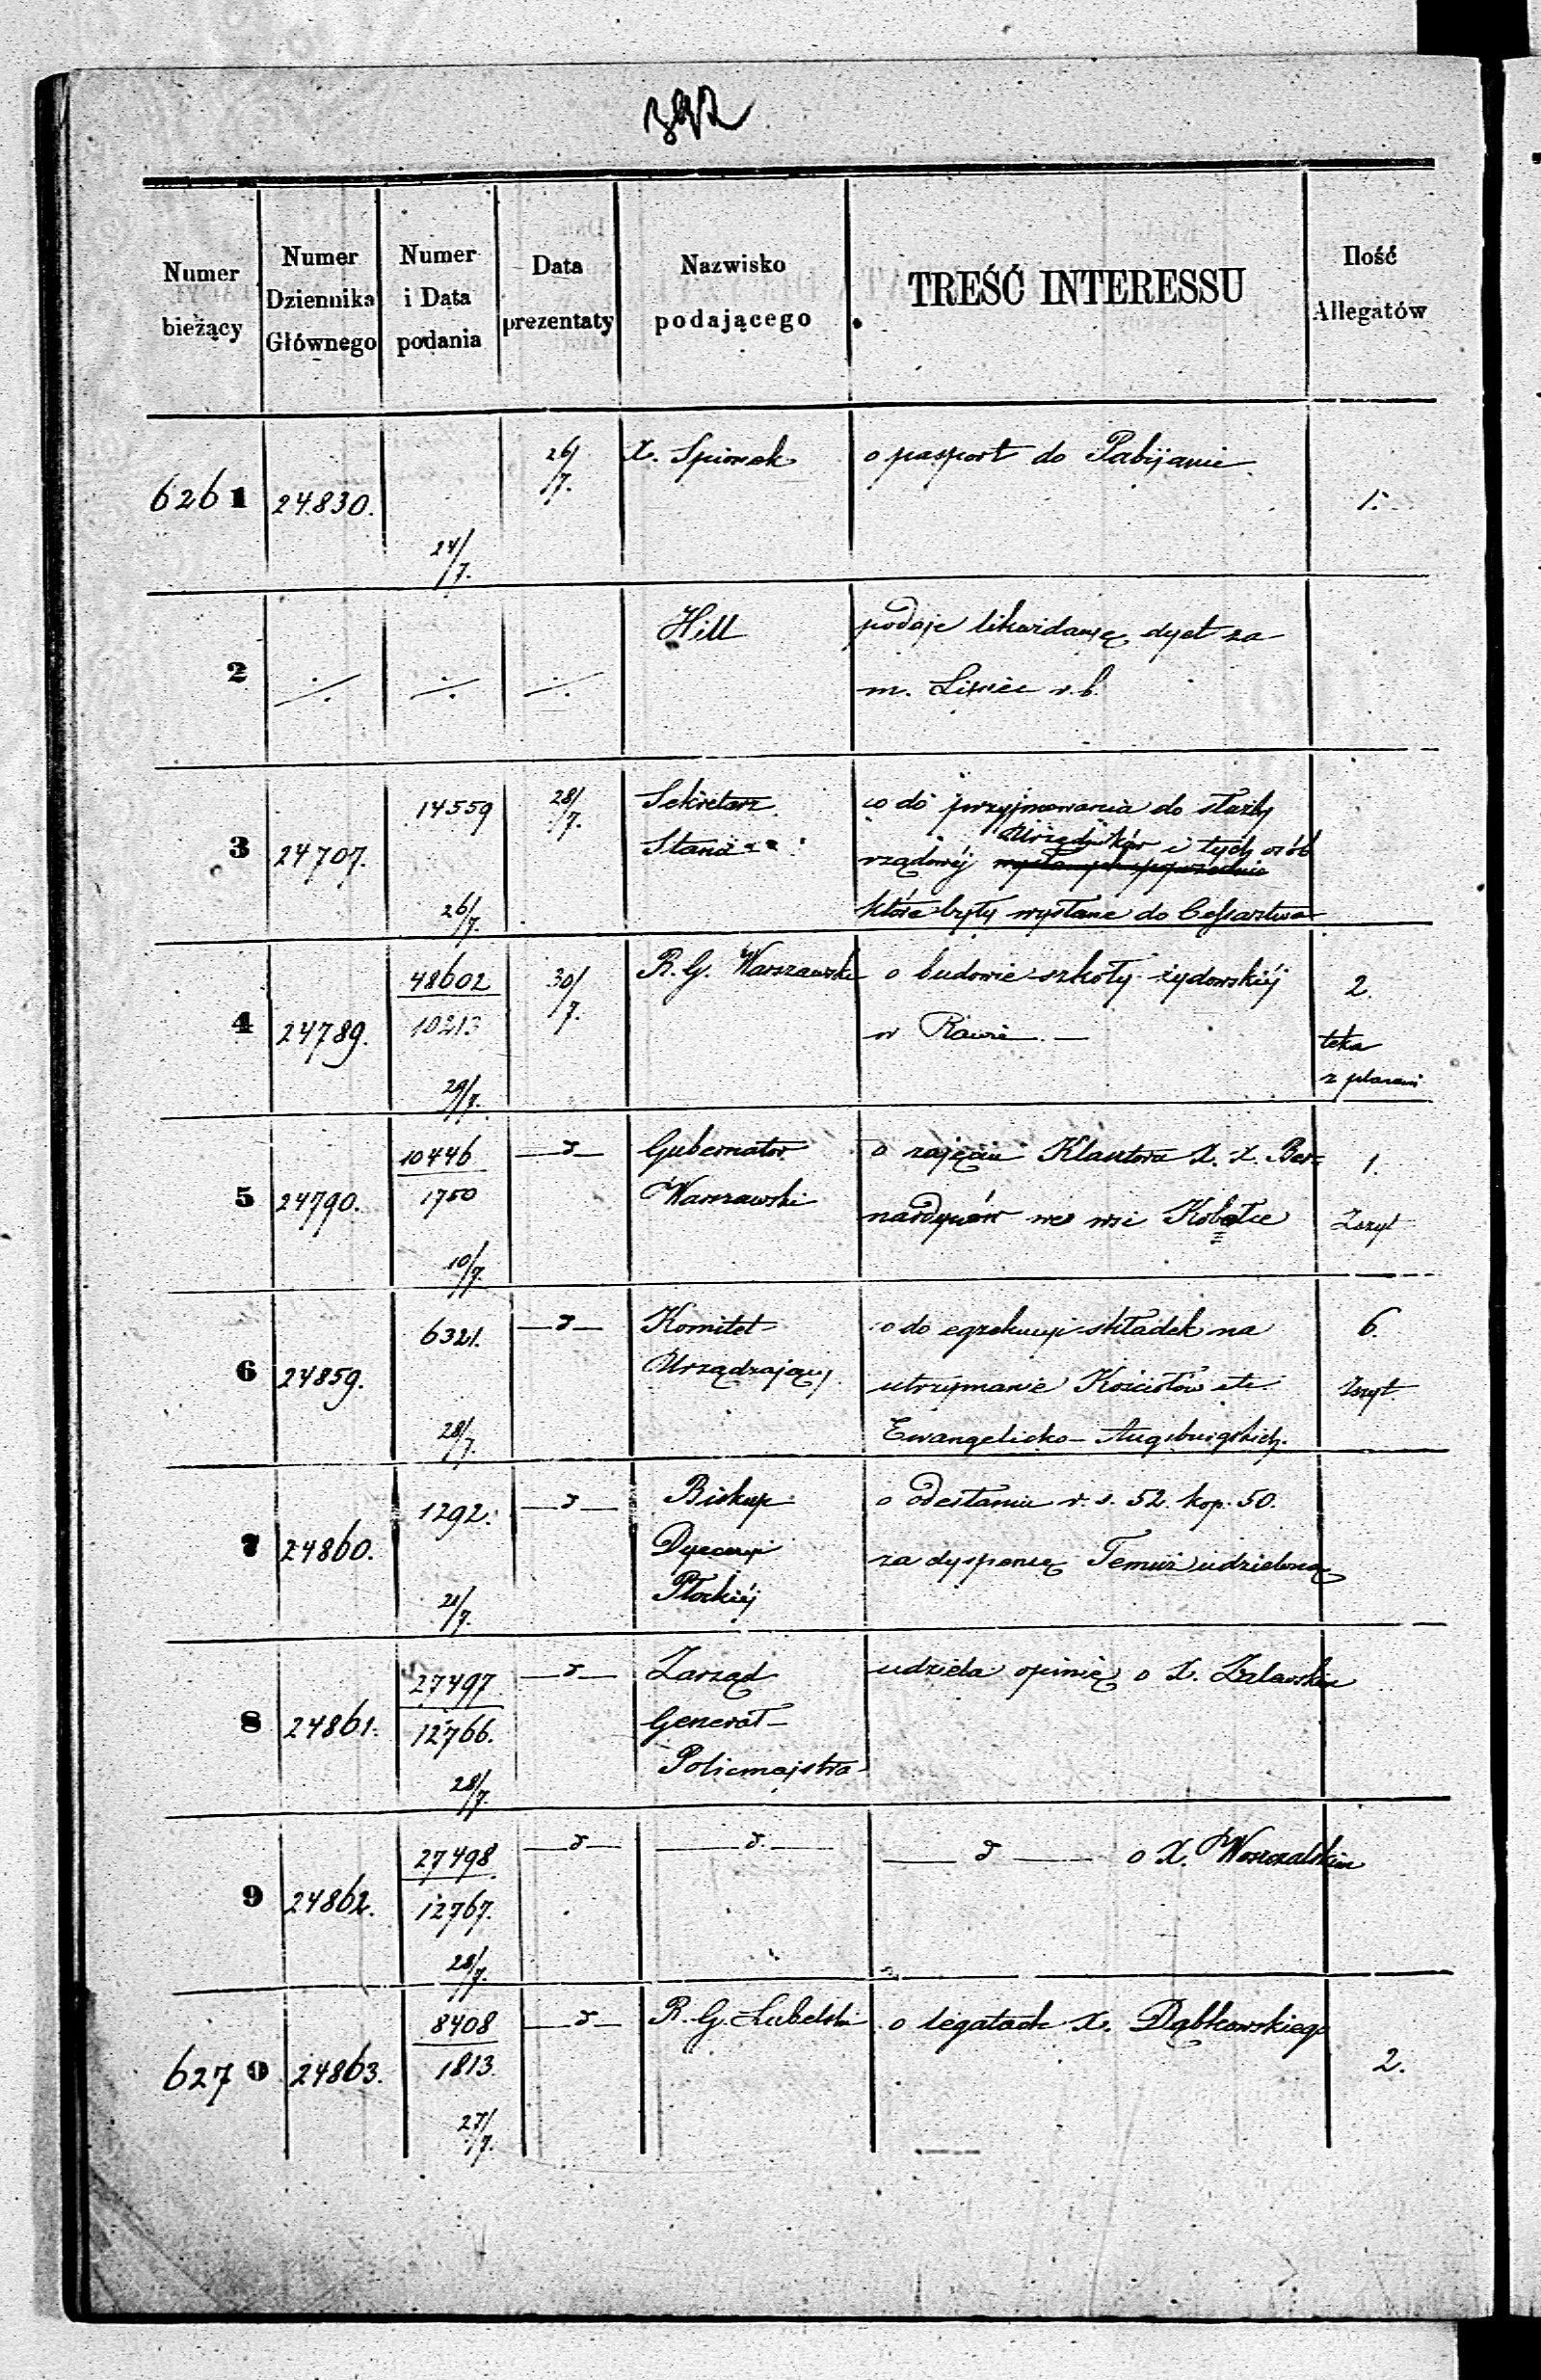 392
Numer bieżący
Numer Dziennika Głównego
Numer i Data podania
Data prezentaty
Nazwisko podającego
TREŚĆ INTERESSU
Ilość Allegatów
6261 24830. 24/7. 26/7. X. Spionek o pasport do Pabijanic 1.
2 ÷ ÷ ÷ Hill podaje likwidacyę dyet za
m. Lipiec r.b.
3 24707. 14559 26/7. 28/7. Sekretarz co do przyjmowania do służby
Stanu rządowéj Urzędników i tych osób
które były wysłane do Cesarstwa
4 24789. 48602 30/7. R. G. Warszawski o budowie szkoły żydowskiéj 2.
10213 w Rawie. — teka
29/7. z planami
5 24790. 10446 —d— Gubernator o zajęciu Klasztora X. X. Ber- 1.
1750 Warszawski nardynów we wsi Kobyłce Zszyt
10/7.
6 24859. 6321. —d— Komitet co do egzekucyi składek na 6.
Urządzający utrzymanie Kościołów etc. Zszyt.
28/7. Ewangelicko-Augsburgskich.
7 24860. 1292. —d— Biskup o odesłaniu r. s. 52 kop. 50.
Dyecezyi za dyspensę Temuż udzieloną
21/7. Płockiéj
8 24861. 27497 —d— Zarząd udziela opinię o X. Zalewskim
12766. Generał-
28/7. Policmajstra
9 24862. 27498 —d— —d.— —d— o X.
12767.
28/7.
6270 24863. 8408 —d— R. G. Lubelski o legatach X. Dąbkowskiego 2.
1813.
27/7.